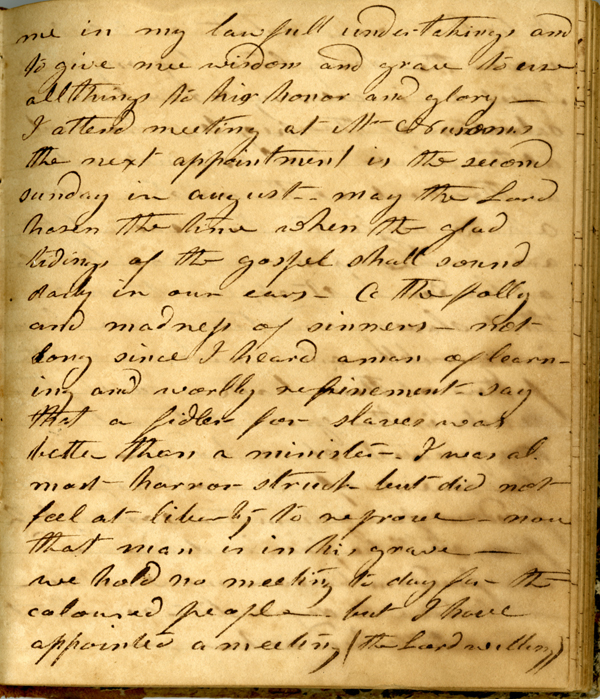 me in my lawfull undertakings and
to give mee wisdom and grace to use
all things to his honor and glory —
I attend meeting at Mr
the next appointment is the second
sunday in august -- may the Lord
hasen the time when the glad
tidings of the gospel shall sound
daily in our ears - O the folly
and madness of sinners - not
long since I heard a man of learn-
ing and worldly refinement say
that a fidler for slaves was
bette than a minister. I was al
most horror struck but did not
feel at liberty to reprove - now
that man is in his grave —
we hold no meeting to day for the
coloured people - but I have
appointed a meeting (the Lord willing)